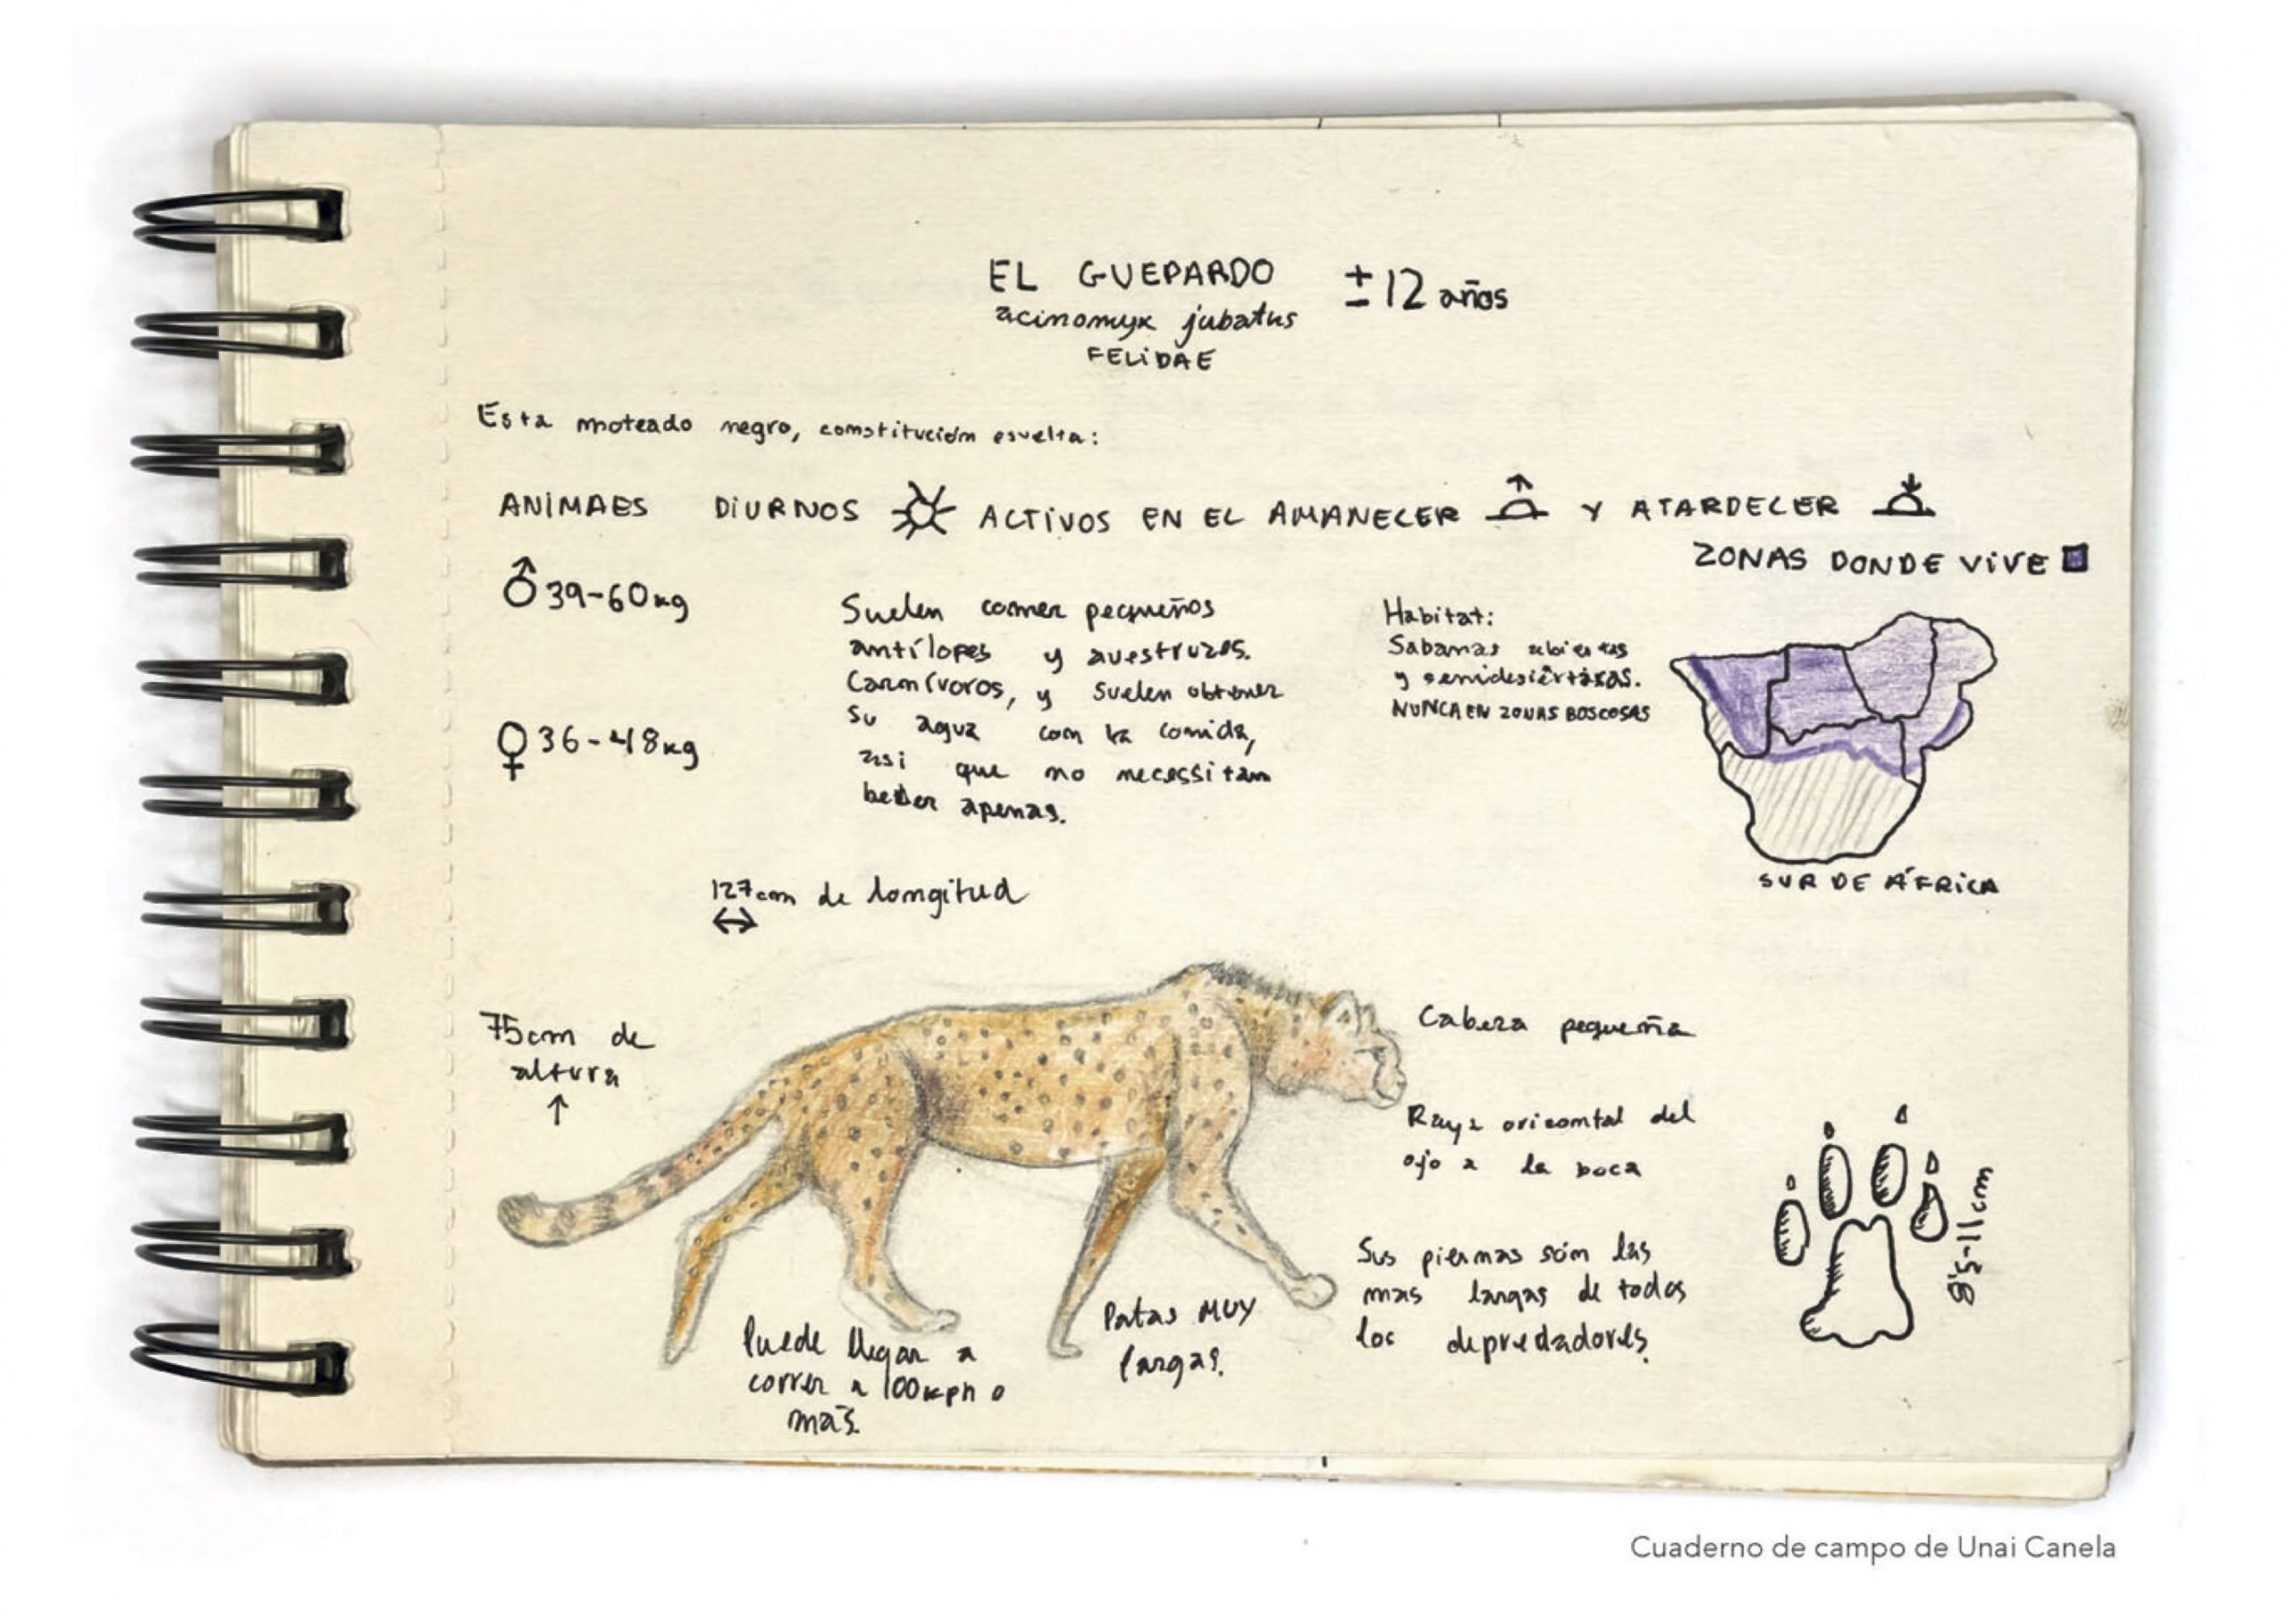 EL GUEPARDO
± 12 años
acinomyx jubatus
FELIDAE
Esta moteado negro, constitución esvelta:
ANIMAES DIURNOS ACTIVOS EN EL AMANECER Y ATARDECER
ZONAS DONDE VIVE
♂ 39-60kg
♀ 36-48kg
Suelen comer pequeños
antílopes y avestruzes.
Carnívoros, y suelen obtener
su agua con la comida,
asi que no necessitan
beber apenas.
Habitat:
Sabanas abiertas
y semidesiértikas.
NUNCA EN ZONAS BOSCOSAS
SUR DE ÁFRICA
127cm de longitud
↔
75cm de
altura
↑
Cabeza pequeña
Raya orizontal del
ojo a la boca
Sus piernas són las
mas largas de todos
los depredadores.
8'5-11cm
Patas MUY
largas.
Puede llegar a
correr a 100kph o
más.
Cuaderno de campo de Unai Canela